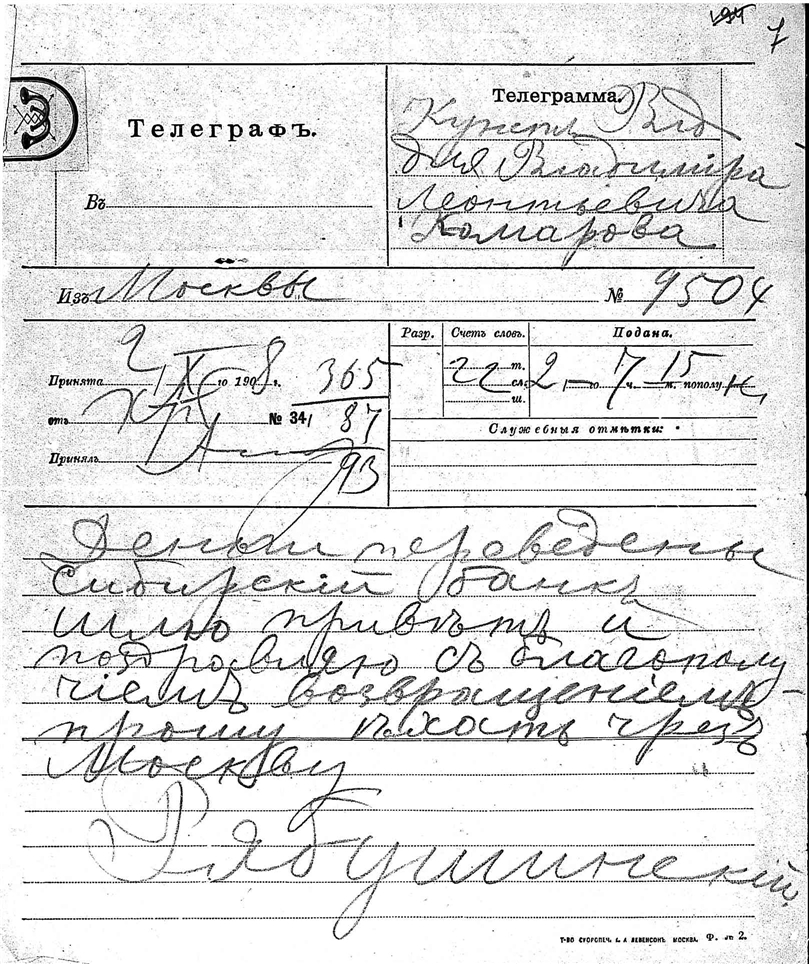 7
Телеграфъ.
Въ
Телеграмма.
Влд
для Владиміра
Леонтьевича
Комарова
Изъ Москвы
№ 9504
Принята 2/IX го 1908 г.
365
отъ
№ 34/ 87
Принялъ
93
Разр.
Счетъ словъ.
Подана.
22
т.
сл.
ш.
2 го 7 ч. 15 м. пополу н.
Служебныя отмѣтки:
Деньги переведены
Сибирскій банкъ
шлю привѣтъ и
поздравляю съ благополу
чіемъ возвращеніемъ
прошу ѣхать чрезъ
Москву
Рябушинскій.
Т-во скоропеч. А. А. Левенсонъ. Москва. Ф. № 2.